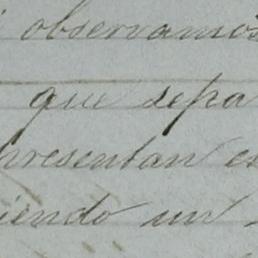 observamos
que sepa
presentan es
iendo un